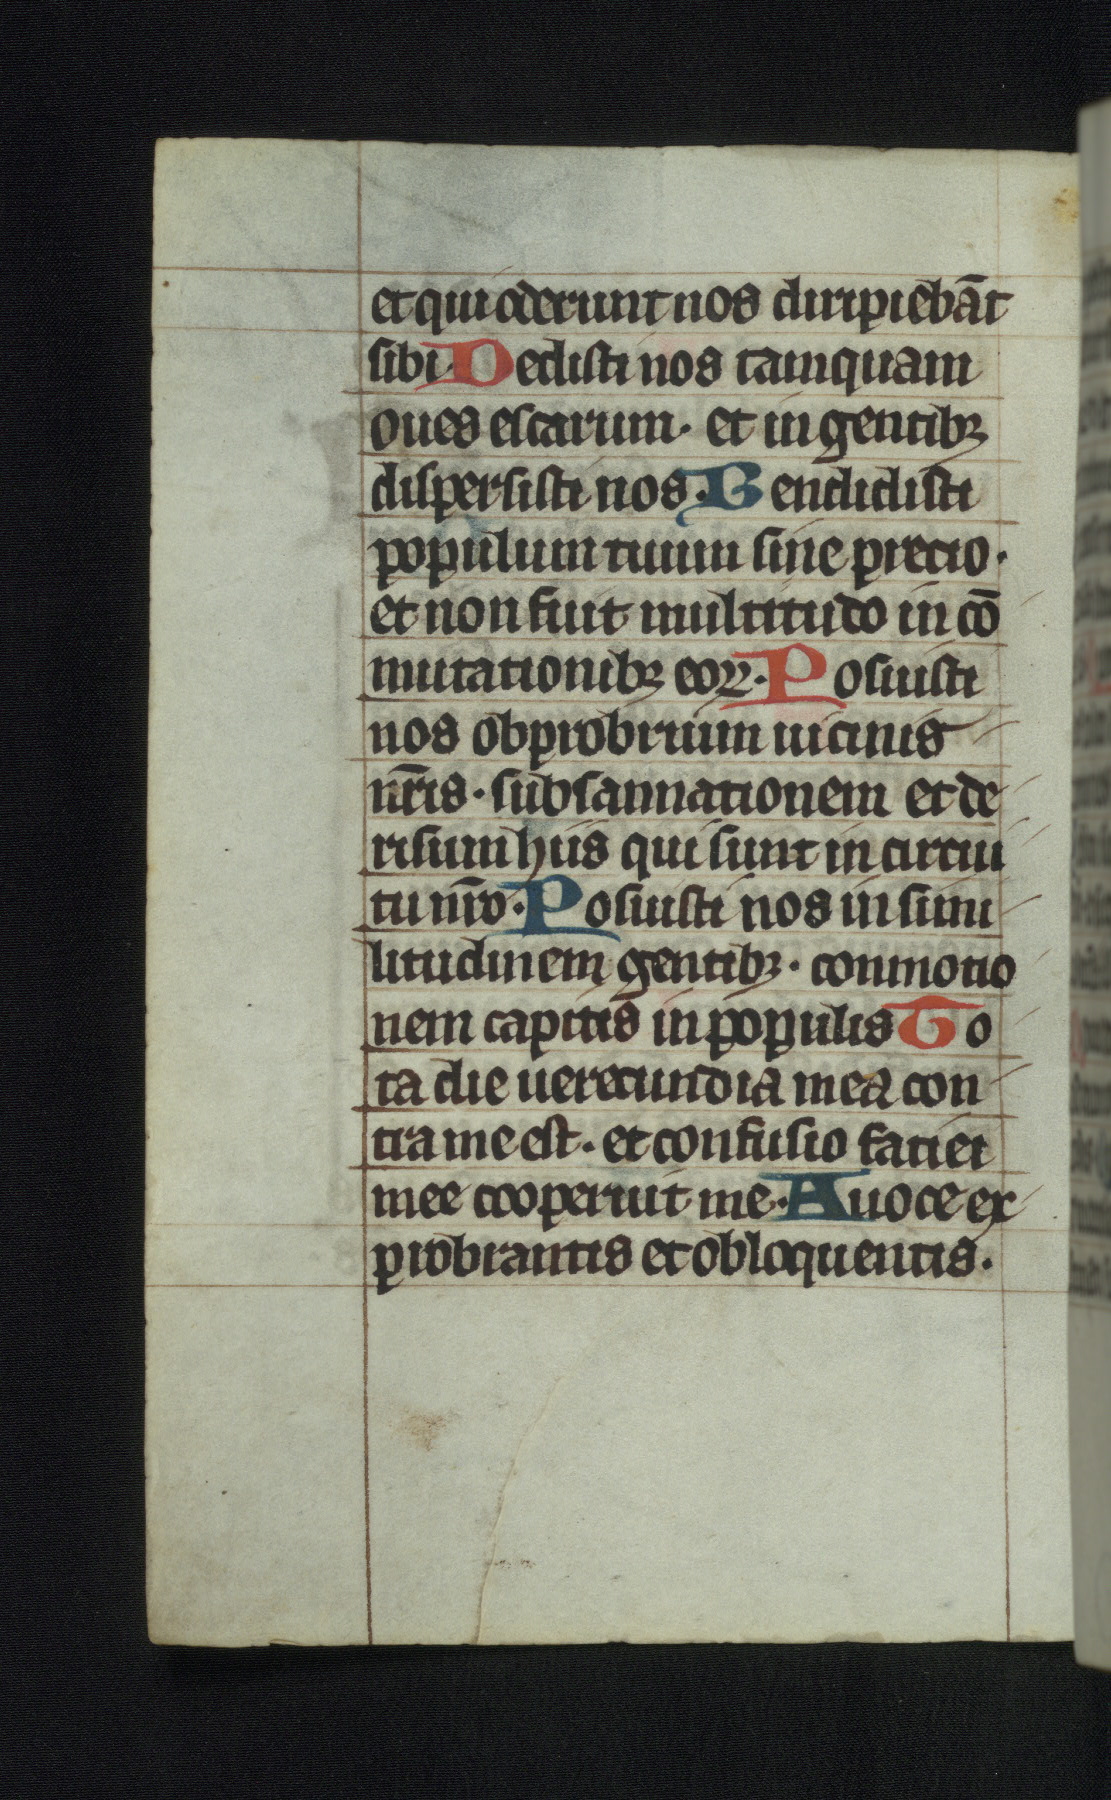 et qui oderunt nos diripiebāt
sibi. Dedisti nos tamquam
oues escarum· et in gentibꝫ
dispersisti nos. Uendidisti
populum tuum sine precio·
et non fuit multitudo in cō
mutationibꝫ eoꝝ. Posuisti
nos obprobrium uicinis
nr̄is· subsannationem et de
risum hiis qui sunt in circui
tu nr̄o. Posuisti nos in simi
litudinem gentibꝫ· conmotio
nem capitis in populis To
ta die uerecundia mea con
tra me est· et confusio faciei
mee cooperuit me. A uoce ex
probrantis et obloquentis.